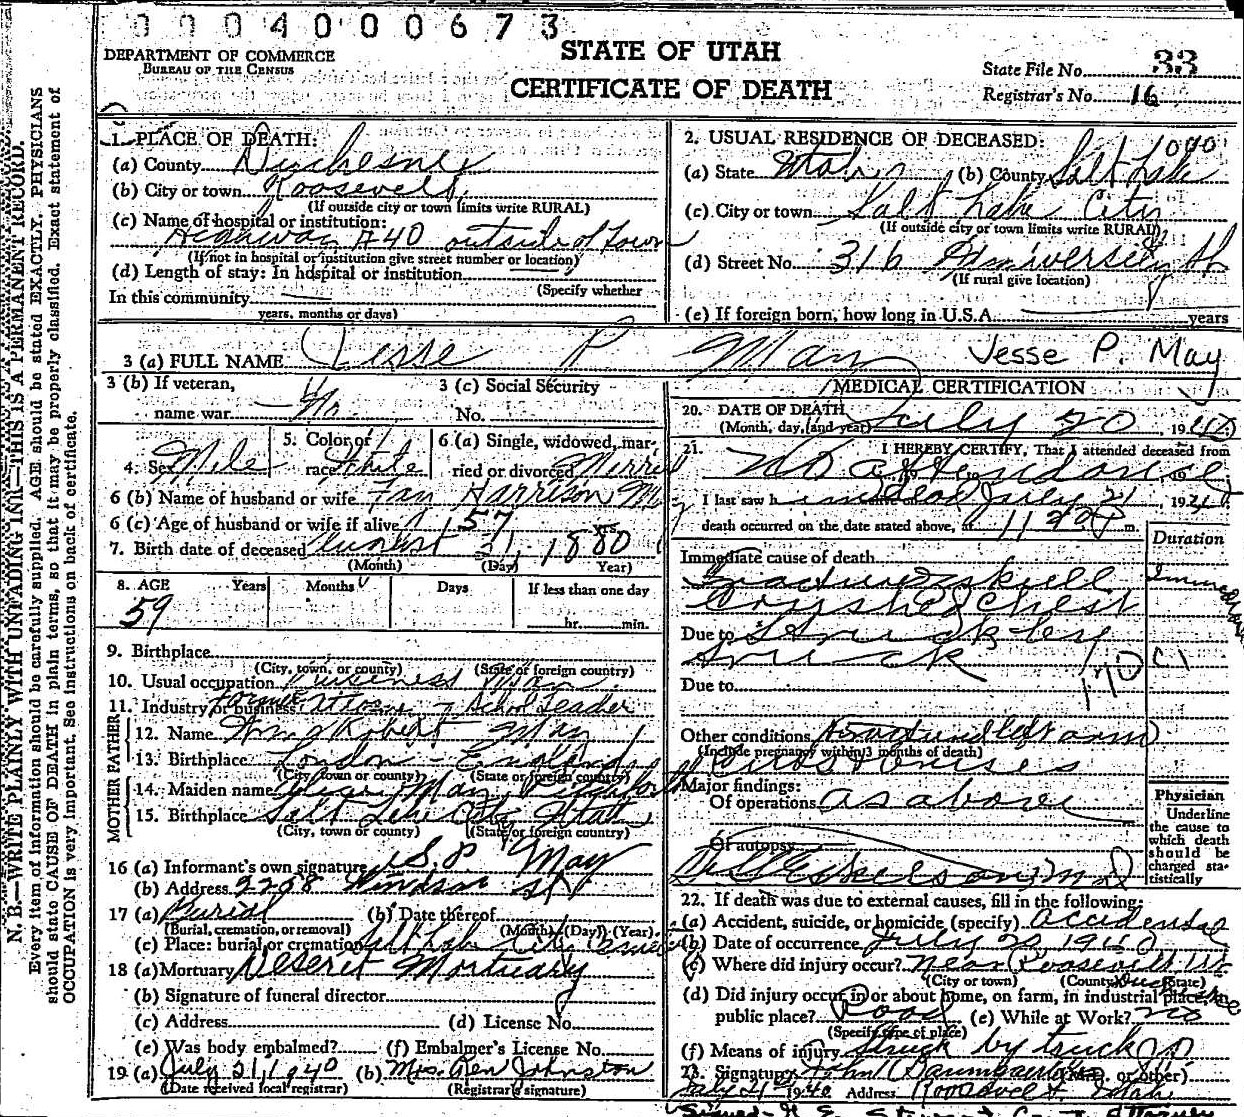 0904000673
DEPARTMENT OF COMMERCE
BUREAU OF THE CENSUS
STATE OF UTAH
CERTIFICATE OF DEATH
State File No. 33
Registrar's No. 16
N. B.—WRITE PLAINLY WITH UNFADING INK—THIS IS A PERMANENT RECORD.
Every item of information should be carefully supplied. AGE should be stated EXACTLY. PHYSICIANS
should state CAUSE OF DEATH in plain terms, so that it may be properly classified. Exact statement of
OCCUPATION is very important. See instructions on back of certificate.
1. PLACE OF DEATH:
(a) County Duchesne
(b) City or town Roosevelt
(If outside city or town limits write RURAL)
(c) Name of hospital or institution:
Highway 40 outside of Town
(If not in hospital or institution give street number or location)
(d) Length of stay: In hospital or institution
(Specify whether
In this community
years, months or days)
2. USUAL RESIDENCE OF DECEASED:
(a) State Utah (b) County Salt Lake
(c) City or town Salt Lake City
(If outside city or town limits write RURAL)
(d) Street No. 316 University St
(If rural give location)
(e) If foreign born, how long in U.S.A. years
3 (a) FULL NAME Jesse P May Jesse P. May
3 (b) If veteran,
name war No
3 (c) Social Security
No.
4. Sex Male
5. Color or
race White
6 (a) Single, widowed, mar-
ried or divorced Married
6 (b) Name of husband or wife Harrison May
6 (c) Age of husband or wife if alive 57 yrs.
7. Birth date of deceased August 31, 1880
(Month) (Day) Year)
8. AGE Years Months Days If less than one day
59 hr. min.
9. Birthplace
(City, town, or county) (State or foreign country)
10. Usual occupation Business Man
11. Industry or business
FATHER
12. Name Wm Robert May
13. Birthplace London - England
(City, town or county) (State or foreign country)
MOTHER
14. Maiden name
15. Birthplace Salt Lake City Utah
(City, town or county) (State or foreign country)
16 (a) Informant's own signature S P May
(b) Address 2208 Windsor St
17 (a) Burial (b) Date thereof
(Burial, cremation, or removal) (Month) (Day) (Year)
(c) Place: burial or cremation Salt Lake City Cemetery
18 (a) Mortuary Deseret Mortuary
(b) Signature of funeral director
(c) Address (d) License No.
(e) Was body embalmed? (f) Embalmer's License No.
19 (a) July 21, 1940 (b) Mrs. Ren Johnston
(Date received local registrar) (Registrar's signature)
MEDICAL CERTIFICATION
20. DATE OF DEATH
(Month, day, and year) July 20, 1940
21. I HEREBY CERTIFY, That I attended deceased from
No attendance
I last saw him dead July 21 1940
death occurred on the date stated above, at 11 m.
Duration
Immediate cause of death
Fractured skull
Crushed Chest
Due to Struck by
truck
170 C1
Due to
Other conditions Fractured left arm
(Include pregnancy within 3 months of death)
Cuts & bruises
Major findings:
Of operations as above
Of autopsy
Physician
Underline
the cause to
which death
should be
charged sta-
tistically
22. If death was due to external causes, fill in the following:
(a) Accident, suicide, or homicide (specify) accidental
(b) Date of occurrence July 20 1940
(c) Where did injury occur? near Roosevelt Ut
(City or town) (County) (State)
Duchesne
(d) Did injury occur in or about home, on farm, in industrial place, in
public place? Road (e) While at Work? no
(Specify type of place)
(f) Means of injury struck by truck
23. Signature John (M.D. or other)
July 21 1940 Address Roosevelt Utah